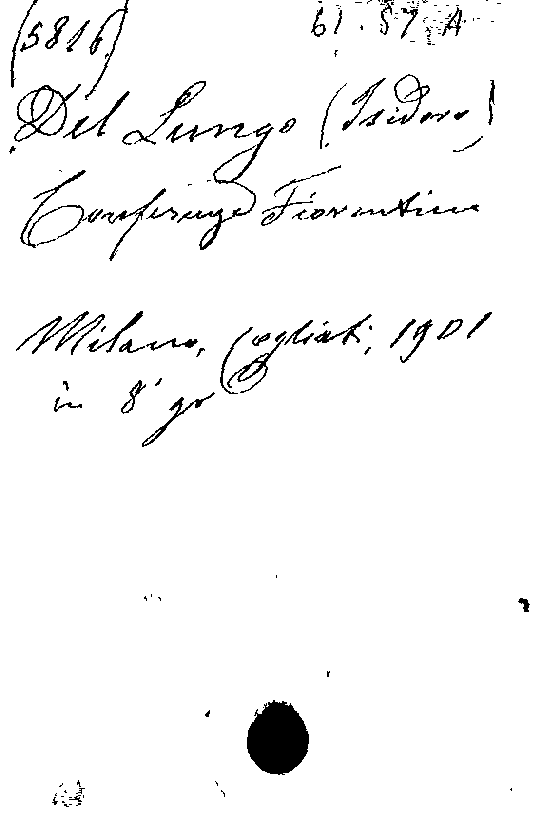 (5816) 61.57.A
Del Lungo (Isidoro)
Conferenze Fiorentine
Milano, Cogliati, 1901
in 8° gr